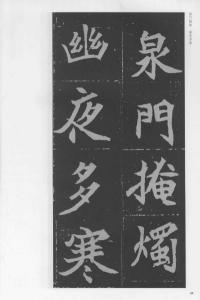 泉門掩燭
幽夜多寒